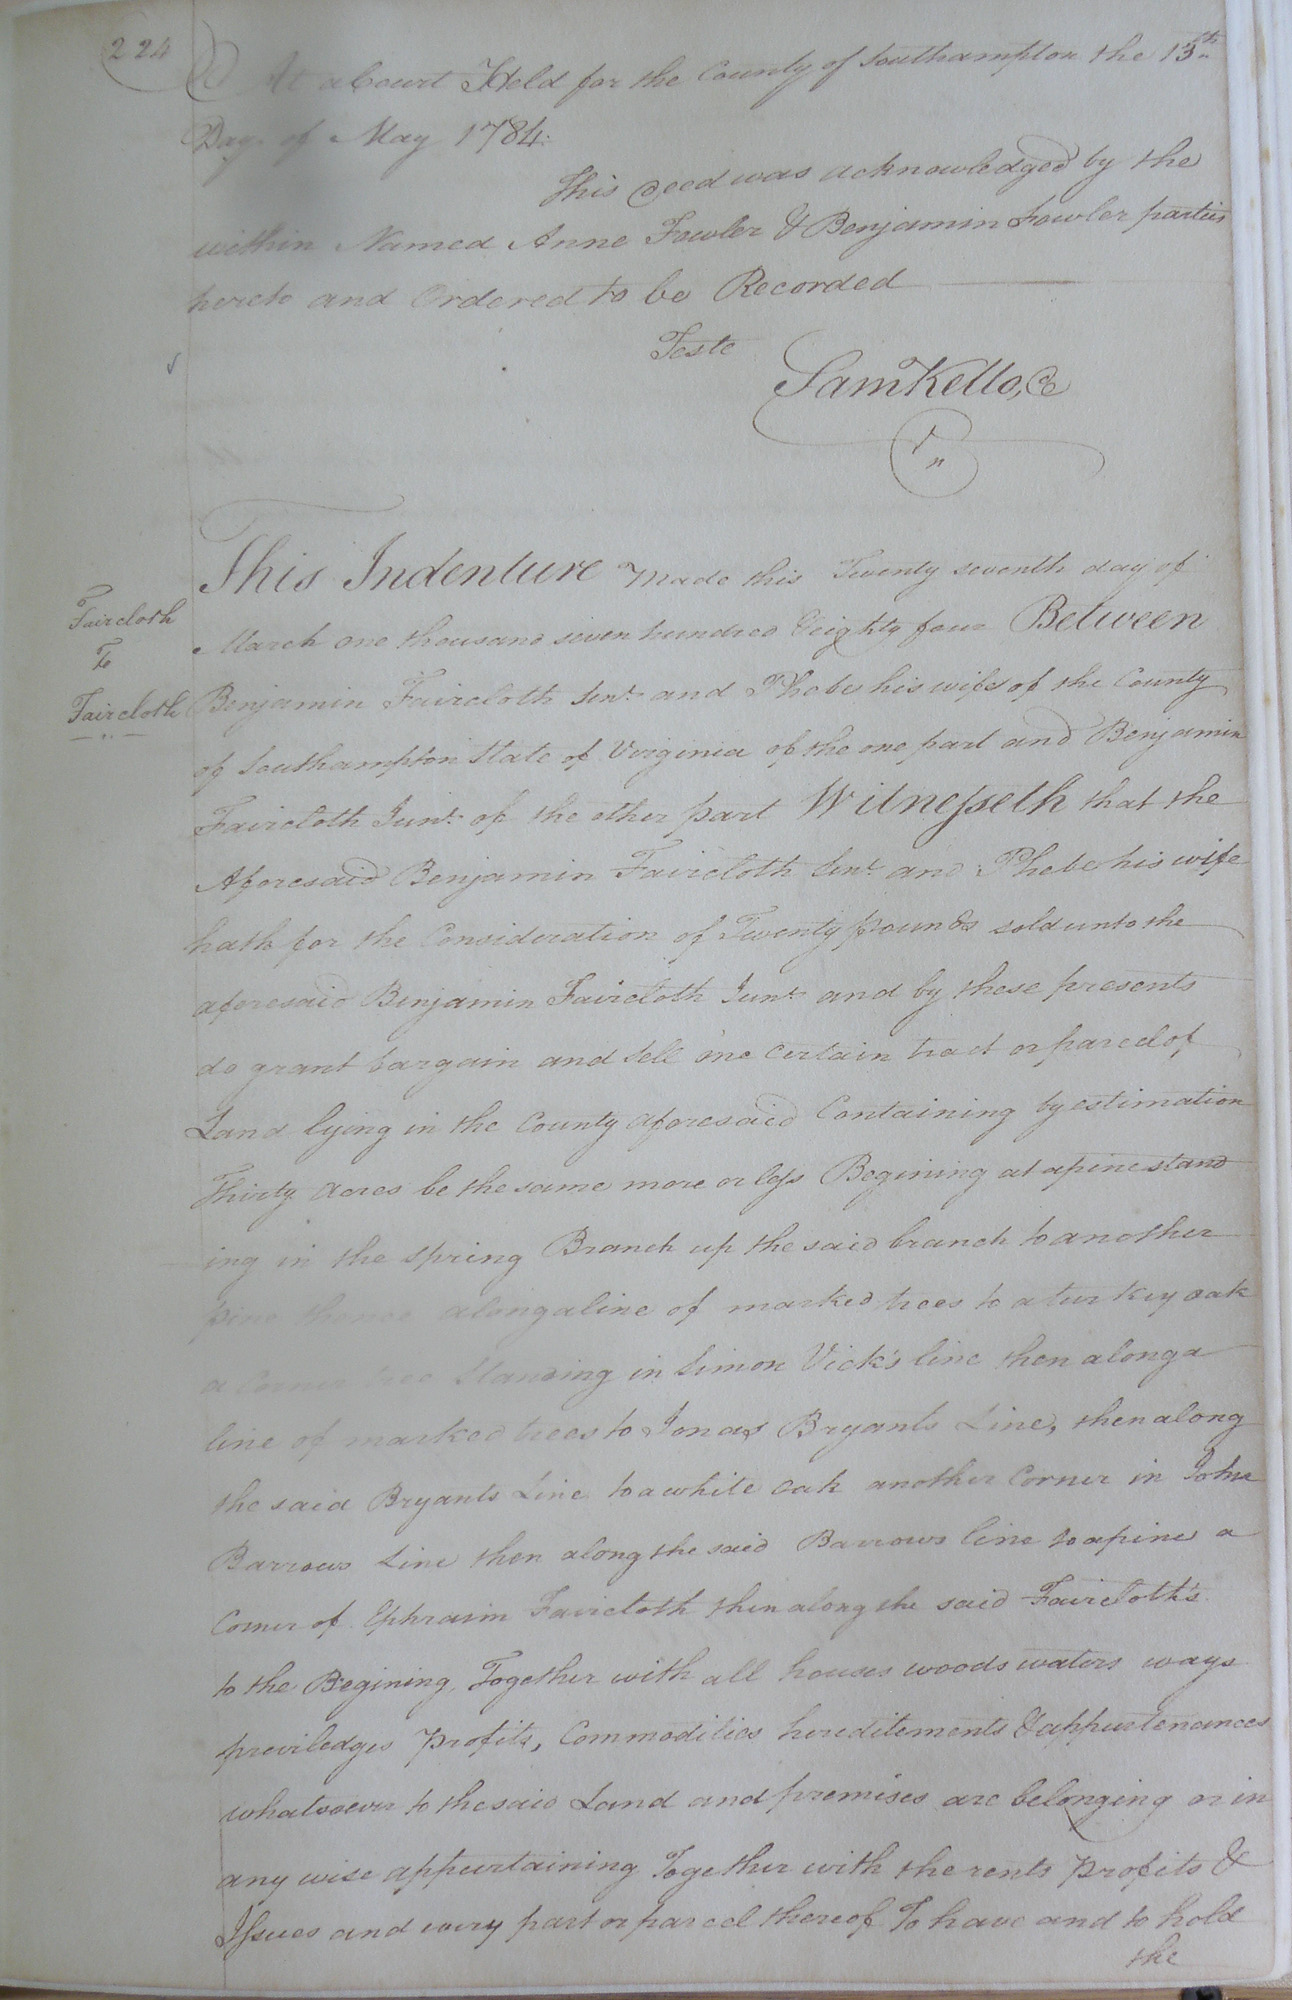 224
At a Court Held for the County of Southampton the 13th
Day of May 1784:
This deed was acknowledged by the
within Named Anne Fowler & Benjamin Fowler parties
hereto and Ordered to be Recorded
Teste
Sam Kello, Cc
This Indenture Made this Twenty seventh day of
March one thousand seven hundred & eighty four Between
Faircloth
To
Faircloth
Benjamin Faircloth Senr. and Phebe his wife of the County
of Southampton State of Virginia of the one part and Benjamin
Faircloth Junr. of the other part Witnesseth that the
Aforesaid Benjamin Faircloth Senr. and Phebe his wife
hath for the Consideration of Twenty pounds sold unto the
aforesaid Benjamin Faircloth Junr. and by these presents
do grant bargain and Sell one certain tract or parcel of
Land lying in the County aforesaid Containing by estimation
Thirty Acres be the same more or less Begining at a pine stand
ing in the Spring Branch up the said branch to another
pine thence along a line of marked trees to a turkey oak
a Corner tree Standing in Simon Vick's line then along a
line of marked trees to Jonas Bryants Line, then along
the said Bryants Line to a white oak another Corner in John
Barrows Line then along the said Barrows line to a pine a
Corner of Ephraim Faircloth then along the said Faircloth's
to the Begining, Together with all houses woods waters ways
previledges Profits, Commodities hereditements & appurtenances
whatsoever to the said Land and premises are belonging or in
any wise appurtaining Together with the rents Profits &
Issues and every part or parcel thereof To have and to hold
the